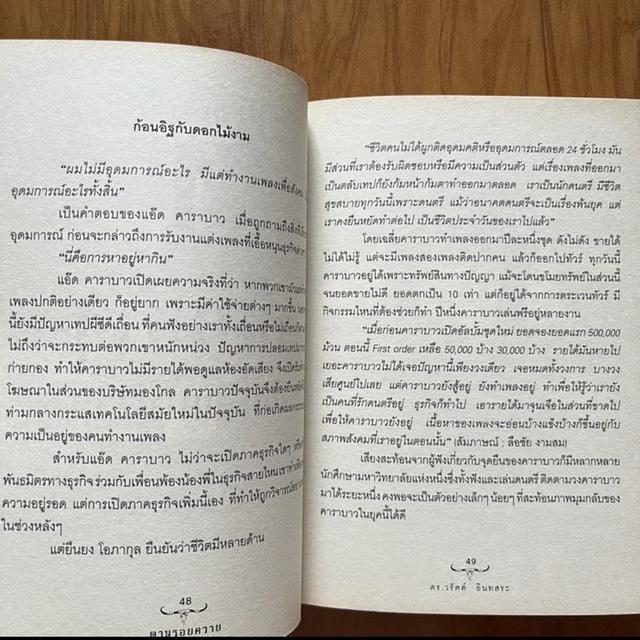 ก้อนอิฐกับดอกไม้งาม
"ผมไม่มีอุดมการณ์อะไร มีแต่ทำงานเพลงเพื่อสังคม
อุดมการณ์อะไรทั้งสิ้น"
เป็นคำตอบของแอ๊ด คาราบาว เมื่อถูกถามถึงสิ่งที่
อุดมการณ์ ก่อนจะกล่าวถึงการรับงานแต่งเพลงที่เอื้อหนุนธุรกิจต่างๆ
"นี่คือการหาอยู่หากิน"
แอ๊ด คาราบาวเปิดเผยความจริงที่ว่า หากพวกเขามัว
เพลงปกติอย่างเดียว ก็อยู่ยาก เพราะมีค่าใช้จ่ายต่างๆ มากขึ้น
นี้ยังมีปัญหาเทปผีซีดีเถื่อน ที่คนฟังอย่างเราทั้งเถื่อนหรือไม่เถื่อน
ไม่ถึงว่าจะกระทบต่อพวกเขาหนักหน่วง ปัญหาการปลอมเทป
ก่ายกอง ทำให้คาราบาวไม่มีรายได้พอดูแลห้องอัดเสียง จึงเปิดรับ
โฆษณาในส่วนของบริษัทมองโกล คาราบาวปัจจุบันจึงต้องยืน
ท่ามกลางกระแสเทคโนโลยีสมัยใหม่ในปัจจุบัน ที่ก่อเกิดผล
ความเป็นอยู่ของคนทำงานเพลง
สำหรับแอ๊ด คาราบาว ไม่ว่าจะเปิดภาคธุรกิจใดๆ
พันธมิตรทางธุรกิจ ร่วมกับเพื่อนพ้องน้องพี่ในธุรกิจสายไหน เขา
ความอยู่รอด แต่การเปิดภาคธุรกิจเพิ่มนี้เอง ที่ทำให้ถูกวิจารณ์
ในช่วงหลังๆ
แต่ยืนยง โอภากุล ยืนยันว่าชีวิตมีหลายด้าน
48
ตามรอยควาย
"ชีวิตคนไม่ได้ผูกติดอุดมคติหรืออุดมการณ์ตลอด 24 ชั่วโมง มัน
มีส่วนที่เราต้องรับผิดชอบหรือมีความเป็นส่วนตัว แต่เรื่องเพลงที่ออกมา
เป็นตลับเทปก็ยังก้มหน้าก้มตาทำออกมาตลอด เราเป็นนักดนตรี มีชีวิต
สุขสบายทุกวันนี้เพราะดนตรี แม้ว่าอนาคตดนตรีจะเป็นเรื่องพ้นยุค แต่
เราคงยืนหยัดทำต่อไป เป็นชีวิตประจำวันของเราไปแล้ว"
โดยเฉลี่ยคาราบาวทำเพลงออกมาปีละหนึ่งชุด ดังไม่ดัง ขายได้
ไม่ได้ไม่รู้ แต่จะมีเพลงสองเพลงติดปากคน แล้วก็ออกไปทัวร์ ทุกวันนี้
คาราบาวอยู่ได้เพราะทรัพย์สินทางปัญญา แม้จะโดนขโมยทรัพย์ในส่วนนี้
จนยอดขายไม่ดี ยอดตกเป็น 10 เท่า แต่ก็อยู่ได้จากการตระเวนทัวร์ มี
กิจกรรมไหนที่ต้องช่วยก็ทำ ปีหนึ่งคาราบาวเล่นฟรีอยู่หลายงาน
"เมื่อก่อนคาราบาวเปิดอัลบั้มชุดใหม่ ยอดจองยอดแรก 500,000
ม้วน ตอนนี้ First order เหลือ 50,000 บ้าง 30,000 บ้าง รายได้มันหายไป
เยอะคาราบาวไม่ได้เจอปัญหานี้เพียงวงเดียว เจอหมดทั้งวงการ บางวง
เสียศูนย์ไปเลย แต่คาราบาวยังสู้อยู่ ยังทำเพลงอยู่ ทำเพื่อให้รู้ว่าเรายัง
เป็นคนที่รักดนตรีอยู่ ธุรกิจก็ทำไป เอารายได้มาจุนเจือในส่วนที่ขาดไป
เพื่อให้คาราบาวยังอยู่ เนื้อหาของเพลงจะอ่อนบ้างแข็งบ้างก็ขึ้นอยู่กับ
สภาพสังคมที่เราอยู่ในตอนนั้น" (สัมภาษณ์ : ลือชัย งามสม)
เสียงสะท้อนจากผู้ฟังเกี่ยวกับจุดยืนของคาราบาวก็มีหลากหลาย
นักศึกษามหาวิทยาลัยแห่งหนึ่งซึ่งทั้งฟังและเล่นดนตรี ติดตามวงคาราบาว
มาได้ระยะหนึ่ง คงพอจะเป็นตัวอย่างเล็กๆ น้อยๆ ที่สะท้อนภาพมุมกลับของ
คาราบาวในยุคนี้ได้ดี
49
ดร.วรัตต์ อินทสระ